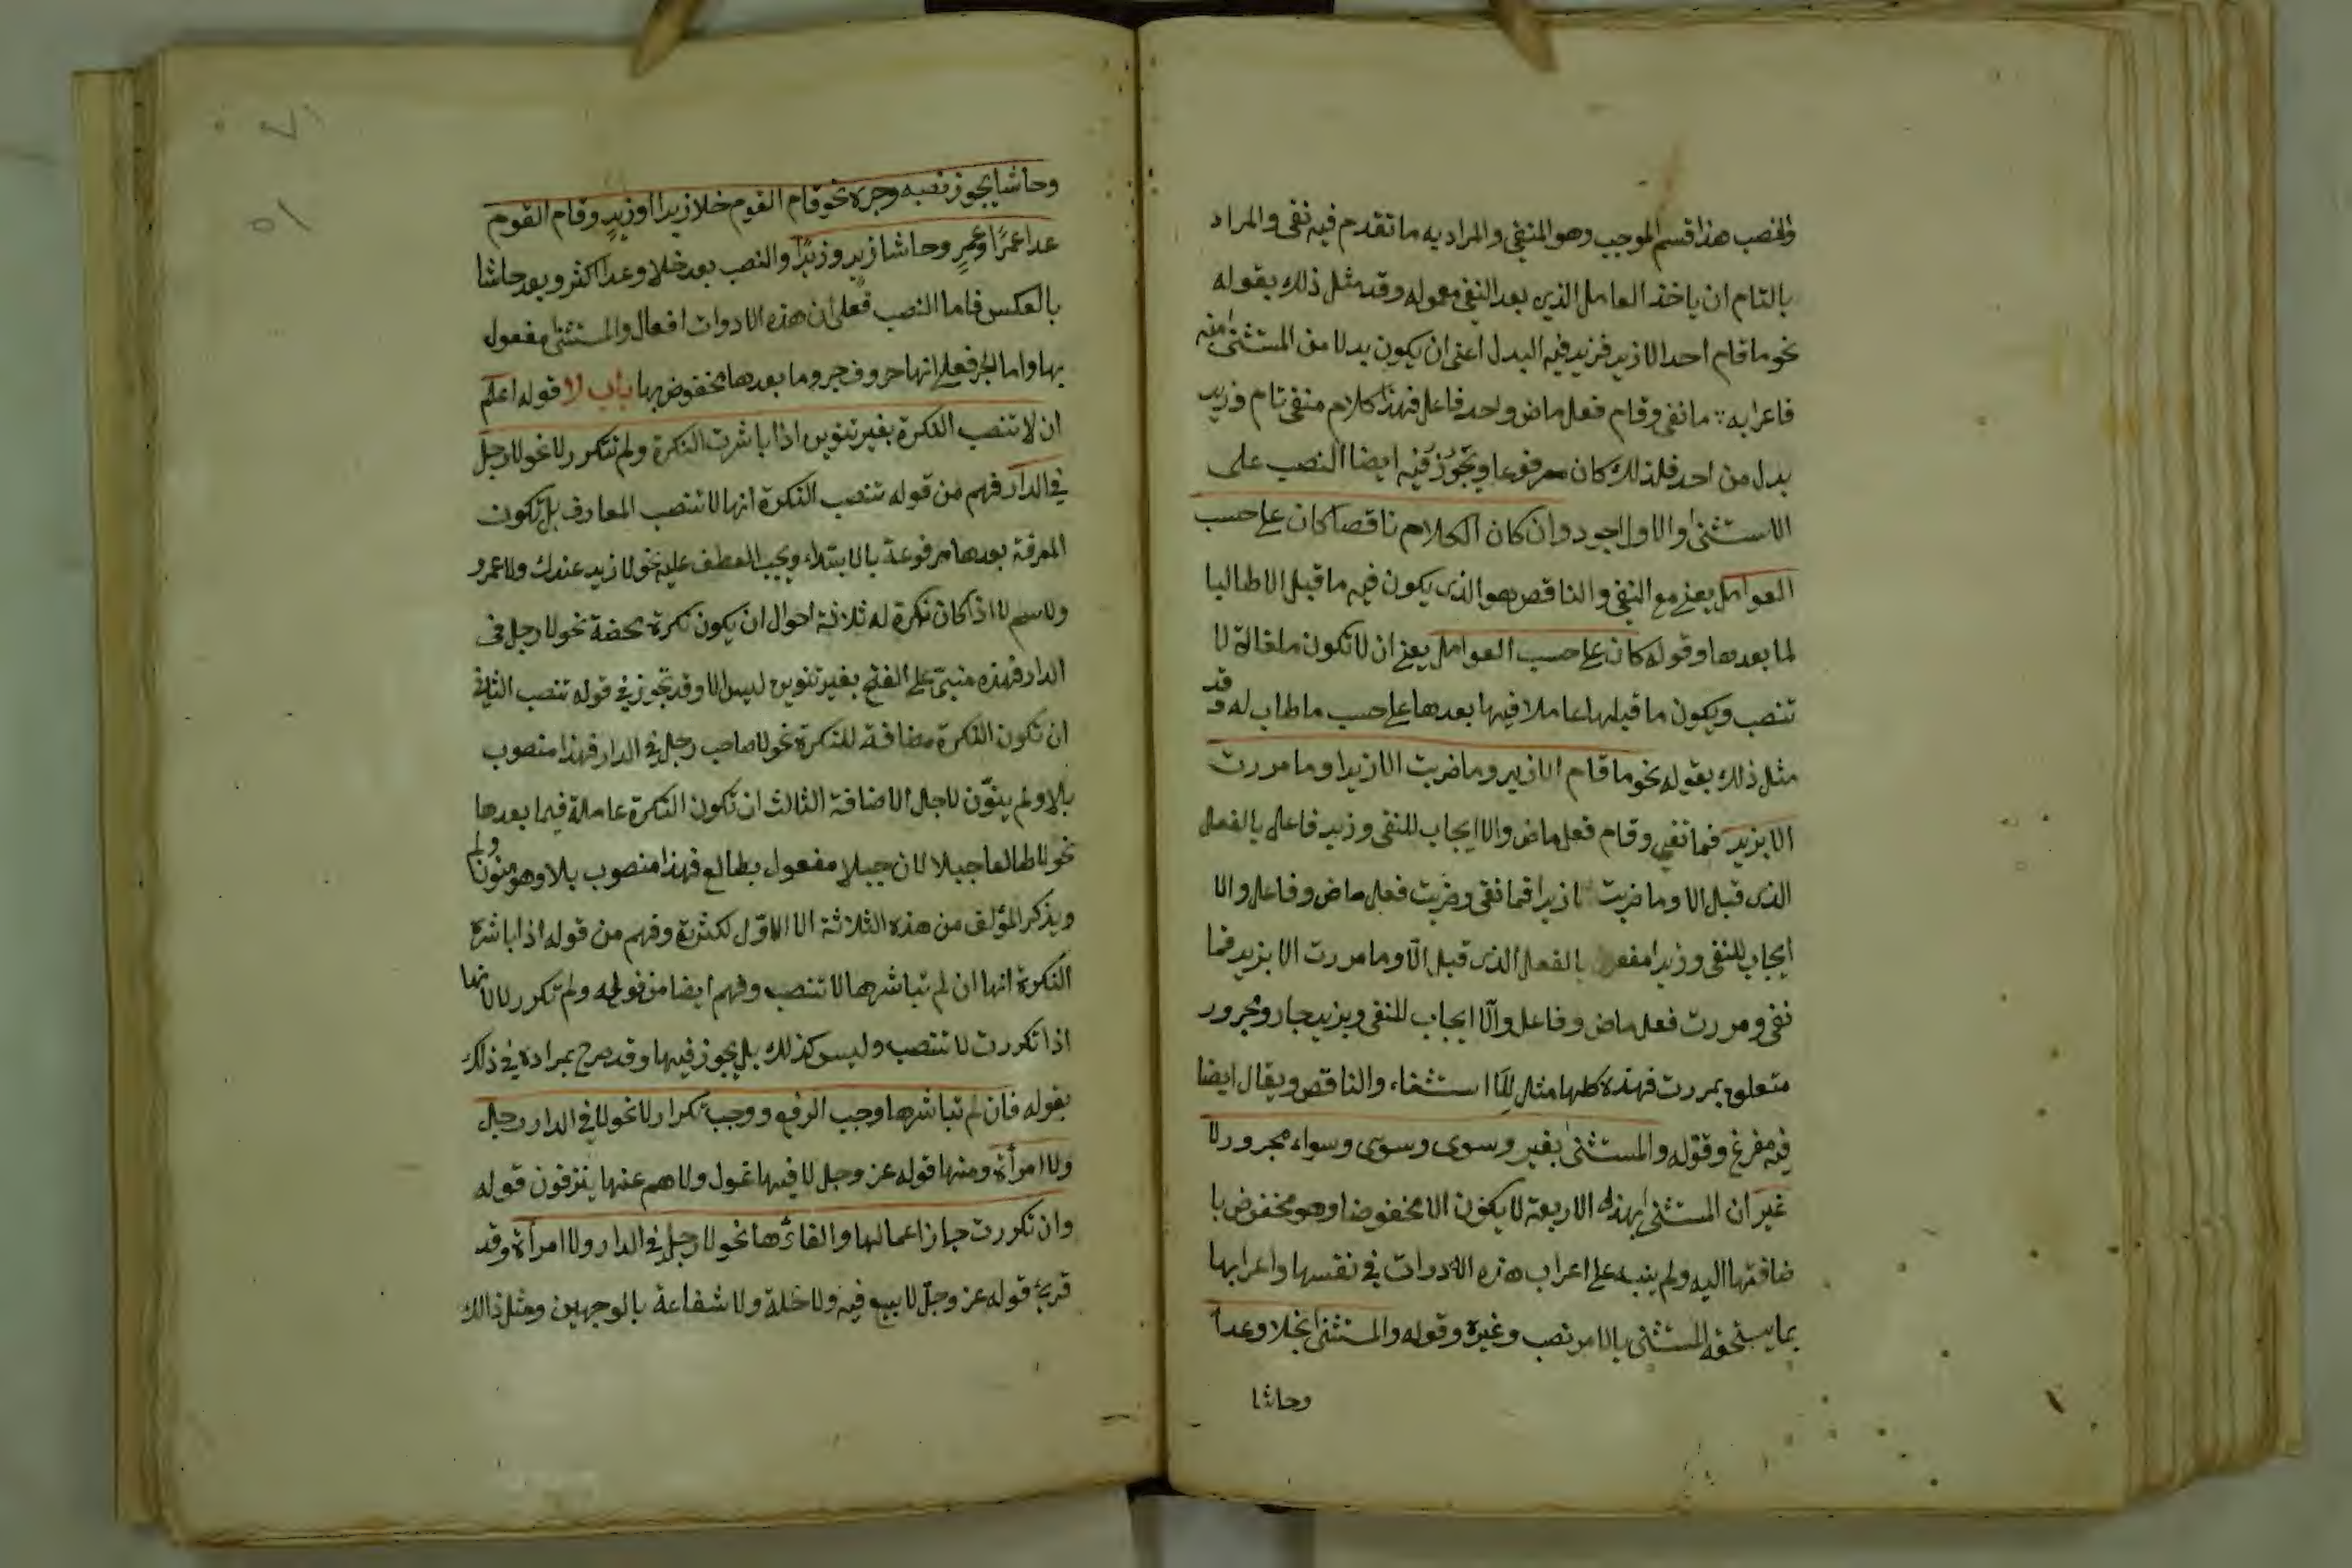 والنصب هذا قسم الموجب وهو المنفي والمراد به ما تقدم فيه نفي والمراد
بالتام ان ياخذ العامل الذي بعد النفي معموله وقد مثل ذلك بقوله
نحو ما قام احد الا زيد فزيد فيه البدل اعني ان يكون بدلا من المستثنى منه
فاعرابه : ما نفي وقام فعل ماض واحد فاعل فهذا كلام منفي تام وزيد
بدل من احد فلذلك كان مرفوعا ويجوز فيه ايضا النصب على
الاستثنى والاول اجود وان كان الكلام ناقصا كان على حسب
العوامل يعني مع النفي والناقص هو الذي يكون فيه ما قبل الا طالبا
لما بعدها وقوله كان على حسب العوامل يعني ان لا تكون ملغاة لا
تنصب ويكون ما قبلها عاملا فيها بعدها على حسب ما طاب له وقد
مثل ذلك بقوله نحو ما قام الا زيد وما ضربت الا زيدا وما مررت
الا بزيد فما نفي وقام فعل ماض والا ايجاب للنفي وزيد فاعل بالفعل
الذي قبل الا وما ضربت الا زيدا فما نفي وضربت فعل ماض وفاعل والا
ايجاب للنفي وزيدا مفعول بالفعل الذي قبل الّا وما مررت الا بزيد فما
نفي ومررت فعل ماض وفاعل والّا ايجاب للنفي وبزيد جار ومجرور
متعلق بمررت فهذه كلها مثل للاستثناء والناقص ويقال ايضا
فيه مفرغ وقوله والمستثنى بغير وسوى وسوى وسواء مجرور لا
غير ان المستثنى بهذه الاربعة لا يكون الا مخفوضا وهو مخفوض با
ضافتها اليه ولم ينبه على اعراب هذه الادوات في نفسها واعرابها
بما يستحقه المستثنى بالا من نصب وغيره وقوله والمستثنى بخلا وعدا
وحاشا
وحاشا يجوز نصبه وجره نحو قام القوم خلا زيدا او زيدٍ وقام القوم
عدا عمرًا وعمرٍ وحاشا زيدٍ وزيدًا والنصب بعد خلا وعدا اكثر وبعد حاشا
بالعكس فاما النصب فعلى ان هذه الادوات افعال والمستثنى مفعول
بها واما الجر فعلى انها حروف جر وما بعدها مخفوض بها باب لا قوله اعلم
ان لا تنصب النكرة بغير تنوين اذا باشرت النكرة ولم تتكرر لا نحو لا رجل
في الدار فهم من قوله تنصب النكرة انها لا تنصب المعارف بل تكون
المعرفة بعدها مرفوعة بالابتداء ويجب العطف عليه نحو لا زيد عندك ولا عمرو
ولاسم لا اذا كان نكرة له ثلاثة احوال ان يكون نكرة محضة نحو لا رجل في
الدار فهذه مبنيّ على الفتح بغير تنوين ليس الا وقد تجوز في قوله تنصب الثاني
ان تكون النكرة مضافة للنكرة نحو لا صاحب رجل في الدار فهذا منصوب
بلا ولم ينوّن لاجل الاضافة الثالث ان تكون النكرة عاملة فيما بعدها
نحو لا طالعا جبلا لان جبلا مفعول بطالع فهذا منصوب بلا وهو منونا ولم
ويذكر المؤلف من هذه الثلاثة الا الاوّل لكثرته وفهم من قوله اذا باشرة
النكرة انها ان لم تباشرها لا تنصب وفهم ايضا من قوله ولم تكرر لا لانها
اذا تكررت لا تنتصب وليس كذلك بل يجوز فيها وقد صرح بمراده في ذلك
بقوله فان لم تباشرها وجب الرفع ووجب تكرار لا نحو لا في الدار رجل
ولا امرأة ومنها قوله عز وجل لا فيها غول ولا هم عنها ينزفون قوله
وان تكررت جاز اعمالها والغاؤها نحو لا رجل في الدار ولا امرأة وقد
قرئ قوله عز وجلّ لا بيع فيه ولا خلة ولا شفاعة بالوجهين ومثل ذالك